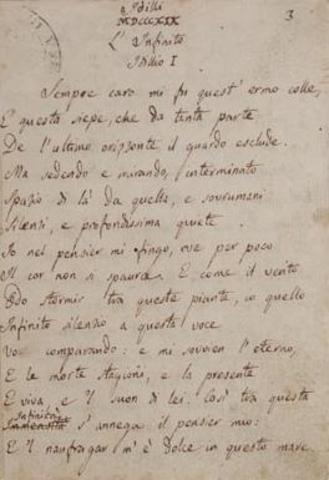 Idilli
MDCCCXIX
3
L' Infinito
Idillio I
Sempre caro mi fu quest' ermo colle,
E questa siepe, che da tanta parte
De l' ultimo orizzonte il guardo esclude.
Ma sedendo e mirando, interminato
Spazio di là da quella, e sovrumani
Silenzi, e profondissima quiete
Io nel pensier mi fingo, ove per poco
Il cor non si spaura. E come il vento
Odo stormir tra queste piante, io quello
Infinito silenzio a questa voce
Vo comparando: e mi sovvien l' eterno,
E le morte stagioni, e la presente
E viva, e 'l suon di lei. Così tra questa
Infinità
Immensità s' annega il pensier mio:
E 'l naufragar m' è dolce in questo mare.